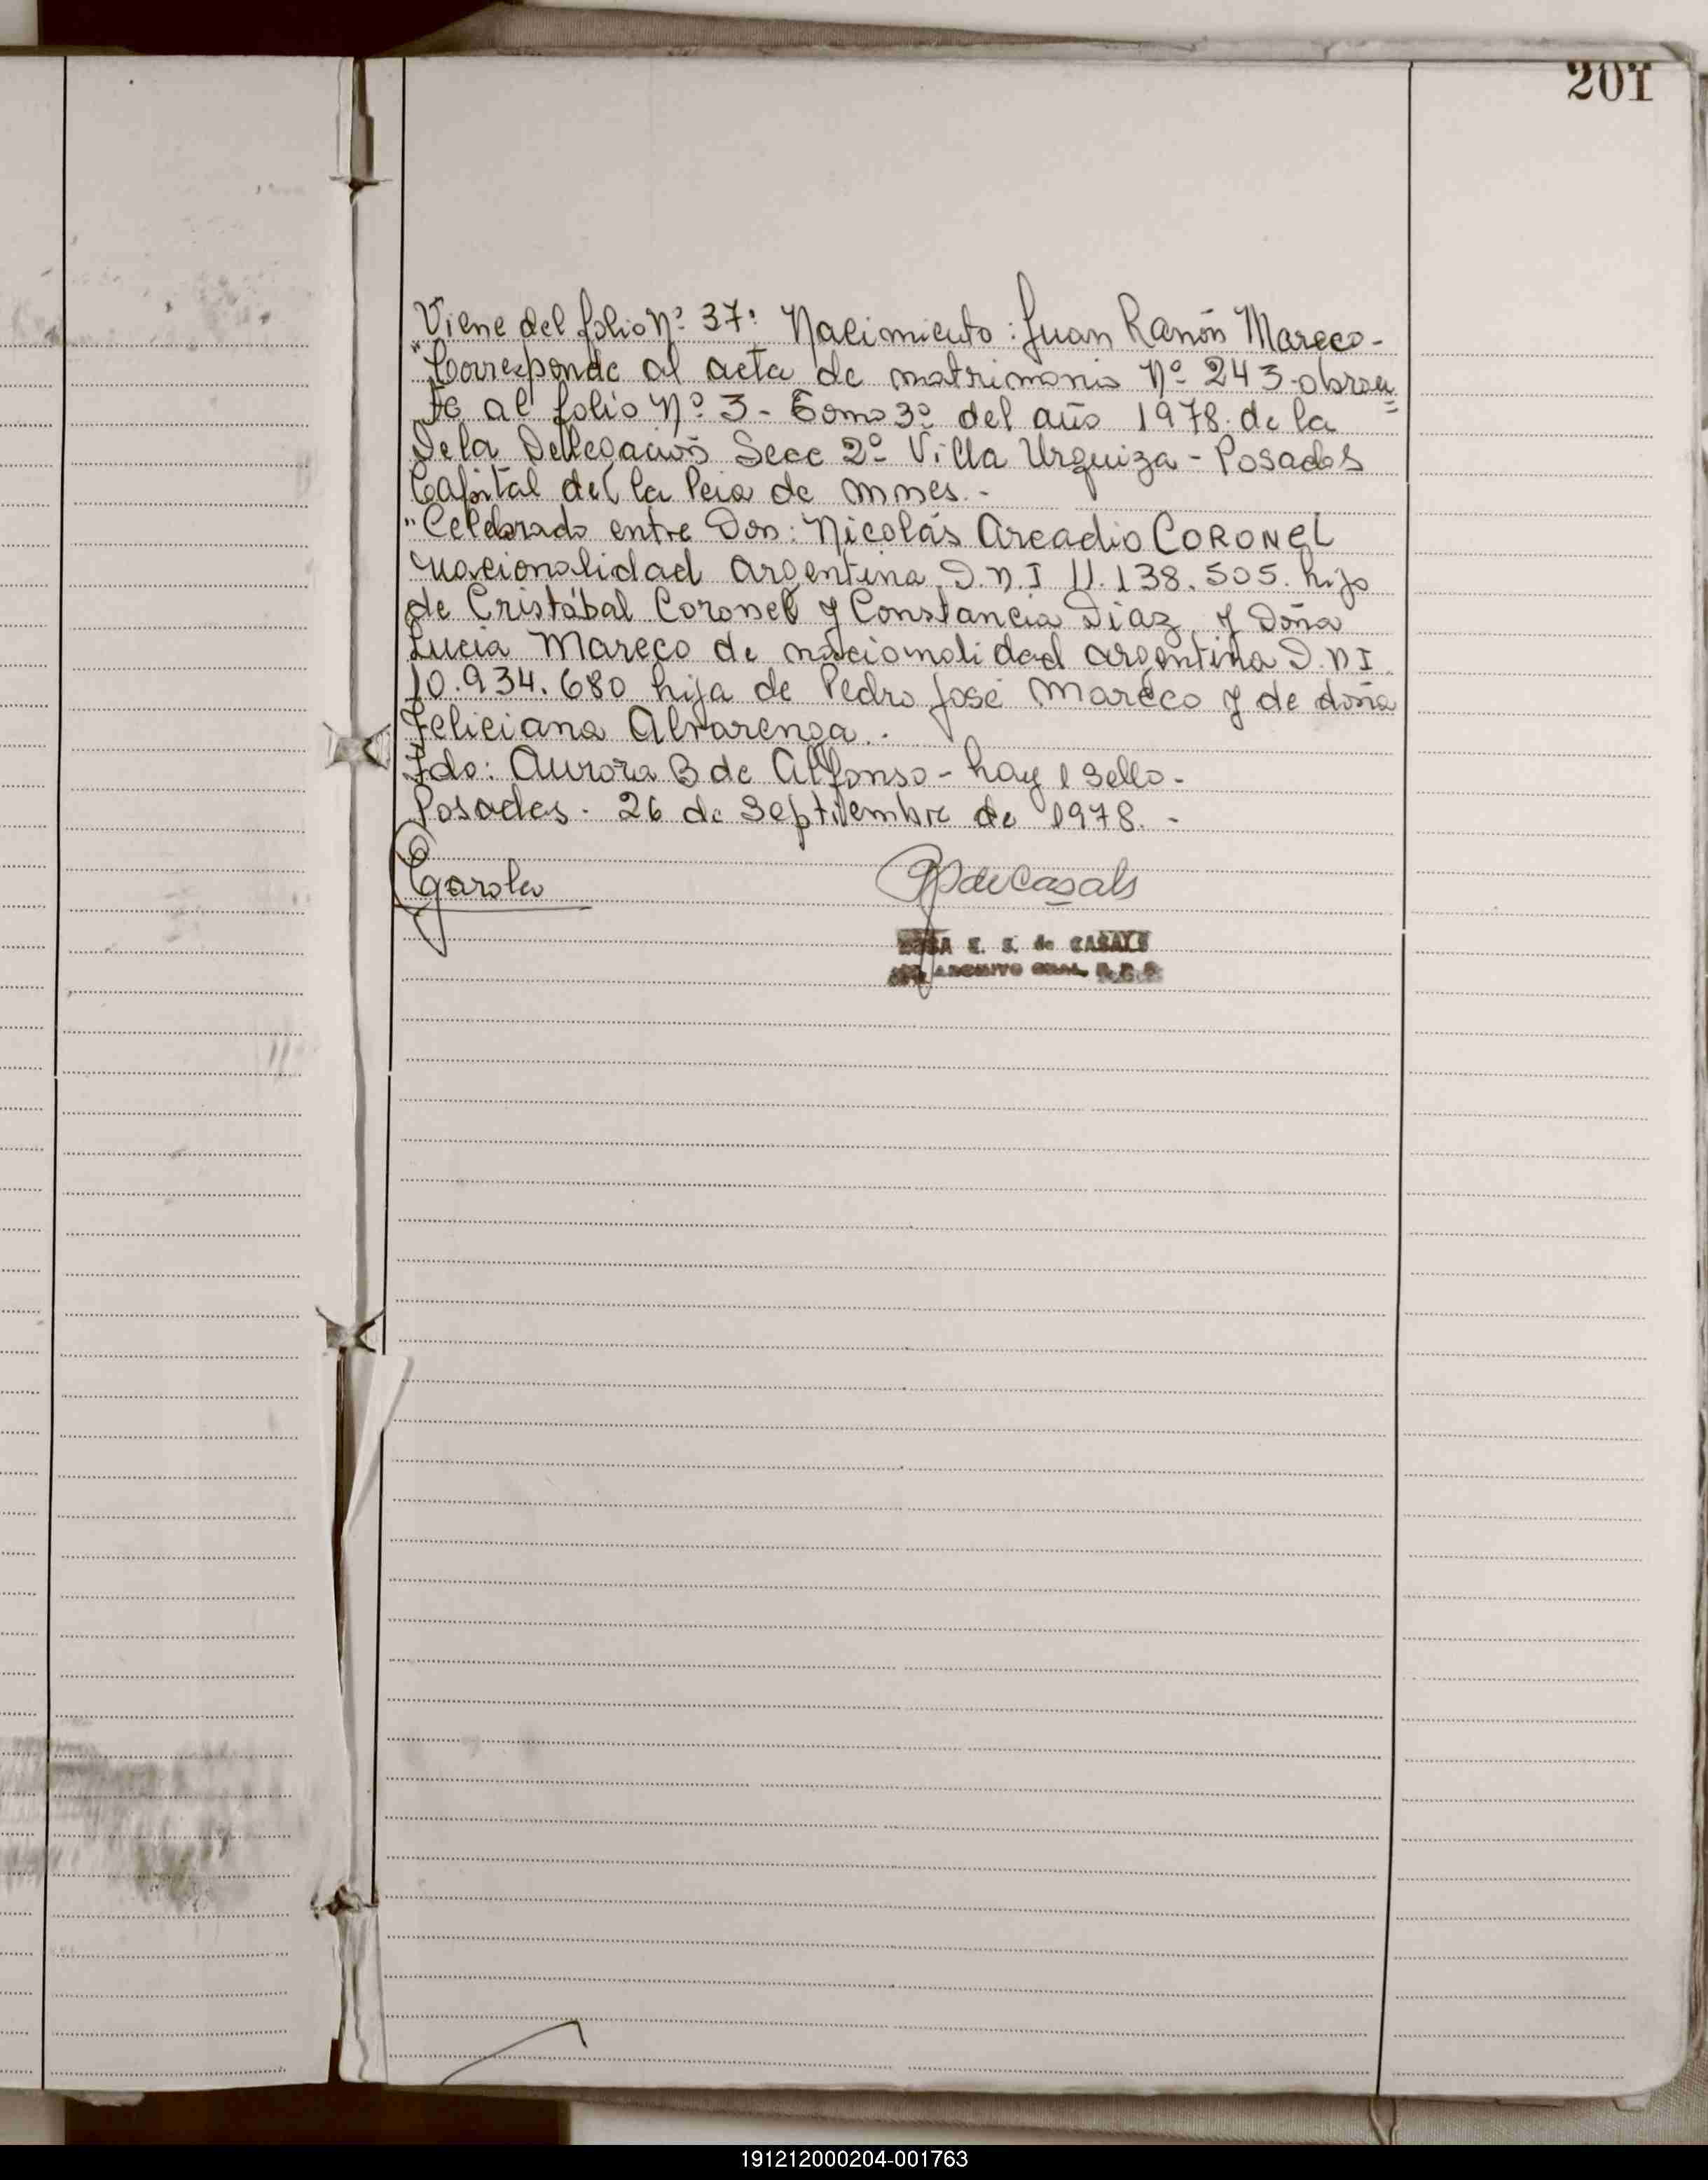 201
Viene del folio Nº 37: Nacimiento: Juan Ramón Mareco-
"Corresponde al acta de matrimonio Nº 243-obran
te al folio Nº 3- Tomo 3º del año 1978. de la
De la Dellegación Secc 2º Villa Urquiza - Posadas
Capital del la Pcia de Mnes.-
"Celebrado entre Don: Nicolás Arcadio CORONEL
nacionalidad argentina D.N.I 11.138.505. hijo
de Cristóbal Coronel y Constancia Diaz y Doña
Lucia Mareco de nacionalidad argentina D.N I
10.934.680 hija de Pedro José Mareco y de doña
Feliciana Alvarenga.-
Fdo: Aurora B de Alfonso - hay 1 Sello-
Posadas - 26 de Septiembre de 1978. -
de Casals
E. de CASALS
ARCHIVO GRAL.
191212000204-001763